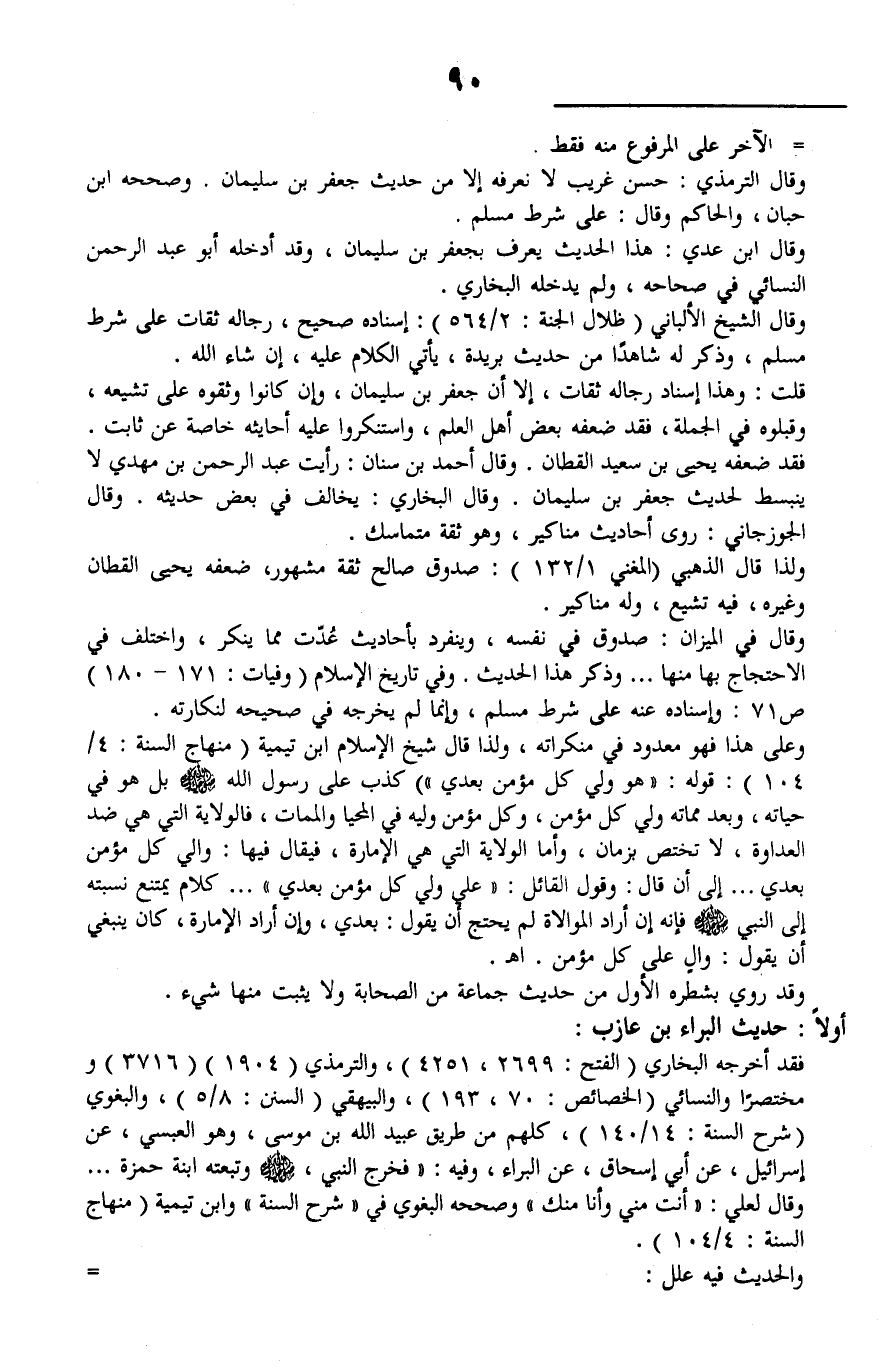 ٩٠
= الآخر على المرفوع منه فقط .
وقال الترمذي : حسن غريب لا نعرفه إلا من حديث جعفر بن سليمان . وصححه ابن
حبان ، والحاكم وقال : على شرط مسلم .
وقال ابن عدي : هذا الحديث يعرف بجعفر بن سليمان ، وقد أدخله أبو عبد الرحمن
النسائي في صحاحه ، ولم يدخله البخاري .
وقال الشيخ الألباني ( ظلال الجنة : ٥٦٤/٢ ) : إسناده صحيح ، رجاله ثقات على شرط
مسلم ، وذكر له شاهدًا من حديث بريدة ، يأتي الكلام عليه ، إن شاء الله .
قلت : وهذا إسناد رجاله ثقات ، إلا أن جعفر بن سليمان ، وإن كانوا وثقوه على تشيعه ،
وقبلوه في الجملة ، فقد ضعفه بعض أهل العلم ، واستنكروا عليه أحايثه خاصة عن ثابت .
فقد ضعفه يحيى بن سعيد القطان . وقال أحمد بن سنان : رأيت عبد الرحمن بن مهدي لا
ينبسط لحديث جعفر بن سليمان . وقال البخاري : يخالف في بعض حديثه . وقال
الجوزجاني : روى أحاديث مناكير ، وهو ثقة متماسك .
ولذا قال الذهبي (المغني ١٣٢/١ ) : صدوق صالح ثقة مشهور، ضعفه يحيى القطان
وغيره ، فيه تشيع ، وله مناكير .
وقال في الميزان : صدوق في نفسه ، وينفرد بأحاديث عُدّت مما ينكر ، واختلف في
الاحتجاج بها منها ... وذكر هذا الحديث . وفي تاريخ الإسلام ( وفيات : ١٧١ – ١٨٠ )
ص٧١ : وإسناده عنه على شرط مسلم ، وإنما لم يخرجه في صحيحه لنكارته .
وعلى هذا فهو معدود في منكراته ، ولذا قال شيخ الإسلام ابن تيمية ( منهاج السنة : ٤/
١٠٤ ) : قوله : « هو ولي كل مؤمن بعدي ») كذب على رسول الله ﷺ بل هو في
حياته ، وبعد مماته ولي كل مؤمن ، وكل مؤمن وليه في المحيا والممات ، فالولاية التي هي ضد
العداوة ، لا تختص بزمان ، وأما الولاية التي هي الإمارة ، فيقال فيها : والي كل مؤمن
بعدي ... إلى أن قال : وقول القائل : « علي ولي كل مؤمن بعدي » ... كلام يمتنع نسبته
إلى النبي ﷺ فإنه إن أراد الموالاة لم يحتج أن يقول : بعدي ، وإن أراد الإمارة ، كان ينبغي
أن يقول : والٍ على كل مؤمن . اهـ .
وقد روي بشطره الأول من حديث جماعة من الصحابة ولا يثبت منها شيء .
أولاً : حديث البراء بن عازب :
فقد أخرجه البخاري ( الفتح : ٢٦٩٩ ، ٤٢٥١ ) ، والترمذي ( ١٩٠٤ ) ( ٣٧١٦ ) و
مختصرًا والنسائي ( الخصائص : ٧٠ ، ١٩٣ ) ، والبيهقي ( السنن : ٥/٨ ) ، والبغوي
( شرح السنة : ١٤٠/١٤ ) ، كلهم من طريق عبيد الله بن موسى ، وهو العبسي ، عن
إسرائيل ، عن أبي إسحاق ، عن البراء ، وفيه : « فخرج النبي ، ﷺ وتبعته ابنة حمزة ...
وقال لعلي : « أنت مني وأنا منك » وصححه البغوي في « شرح السنة » وابن تيمية ( منهاج
السنة : ١٠٤/٤ ) .
والحديث فيه علل : =